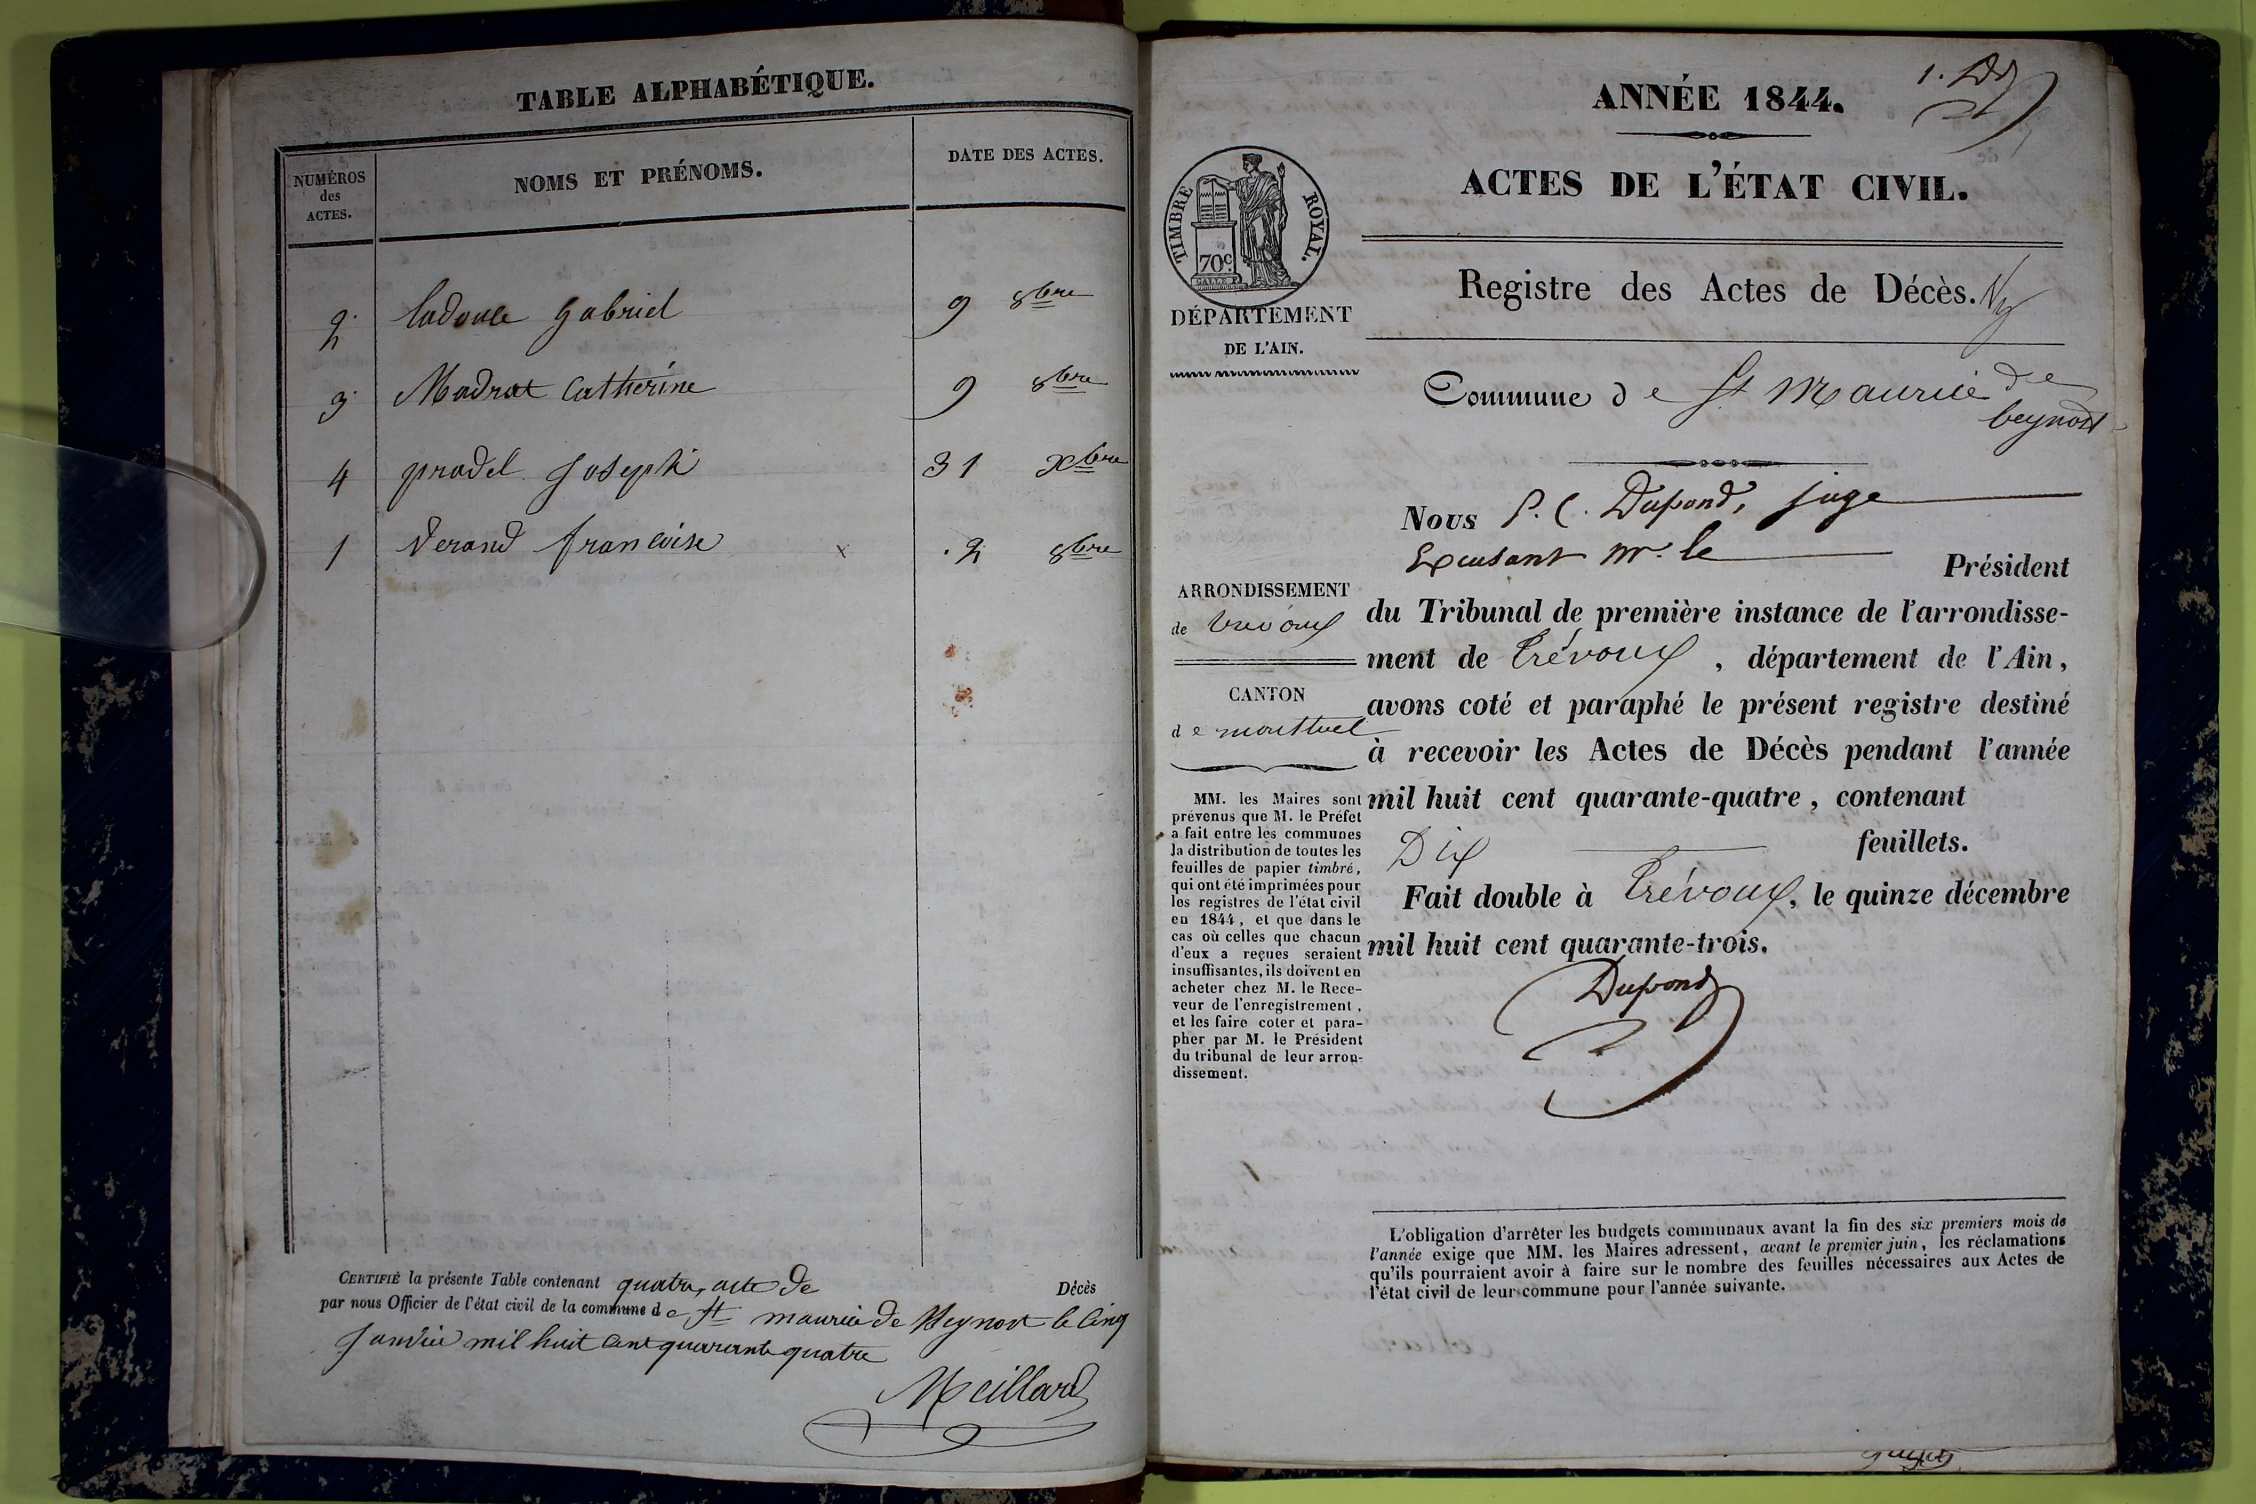 TABLE ALPHABÉTIQUE.
NUMÉROS
des
ACTES.
NOMS ET PRÉNOMS.
DATE DES ACTES.
2 ladouce gabriel 9 8bre
3 Madrat Catherine 9 8bre
4 pradel Joseph 31 Xbre
1 Verand françoise x 2 8bre
CERTIFIÉ la présente Table contenant quatre acte de Décès
par nous Officier de l'état civil de la commune de St maurice de Beynost le cinq
Janvier mil huit cent quarante quatre
Meillard
ANNÉE 1844.
1. Dd
ACTES DE L'ÉTAT CIVIL.
TIMBRE ROYAL.
70c.
DÉPARTEMENT
DE L'AIN.
Registre des Actes de Décès.
Commune de St Maurice de
beynost
Nous P. C. Dupond, juge
Excusant mr. le Président
du Tribunal de première instance de l'arrondisse-
ment de Trévoux, département de l'Ain,
avons coté et paraphé le présent registre destiné
à recevoir les Actes de Décès pendant l'année
mil huit cent quarante-quatre, contenant
Dix feuillets.
Fait double à Trévoux, le quinze décembre
mil huit cent quarante-trois.
Dupond
ARRONDISSEMENT
de trevoux
CANTON
de montluel
MM. les Maires sont
prévenus que M. le Préfet
a fait entre les communes
la distribution de toutes les
feuilles de papier timbré,
qui ont été imprimées pour
les registres de l'état civil
en 1844, et que dans le
cas où celles que chacun
d'eux a reçues seraient
insuffisantes, ils doivent en
acheter chez M. le Rece-
veur de l'enregistrement,
et les faire coter et para-
pher par M. le Président
du tribunal de leur arron-
dissement.
L'obligation d'arrêter les budgets communaux avant la fin des six premiers mois de
l'année exige que MM. les Maires adressent, avant le premier juin, les réclamations
qu'ils pourraient avoir à faire sur le nombre des feuilles nécessaires aux Actes de
l'état civil de leur commune pour l'année suivante.